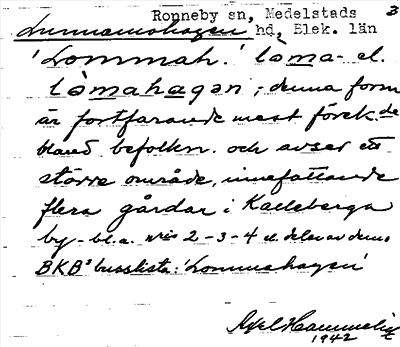 Ronneby sn, Medelstads 3
Lummamohagen hd, Blek. län
'Lommah.' lòma- el.
lòmahagan ; denna form
är fortfarande mest förek.de
bland befolkn. och avser ett
större område, innefattande
flera gårdar i Kalleberga
by - bl.a. nris 2-3-4 el. delar av dem.
BKB:s busslista: 'Lommahagen'
Axel Hammelin
1942